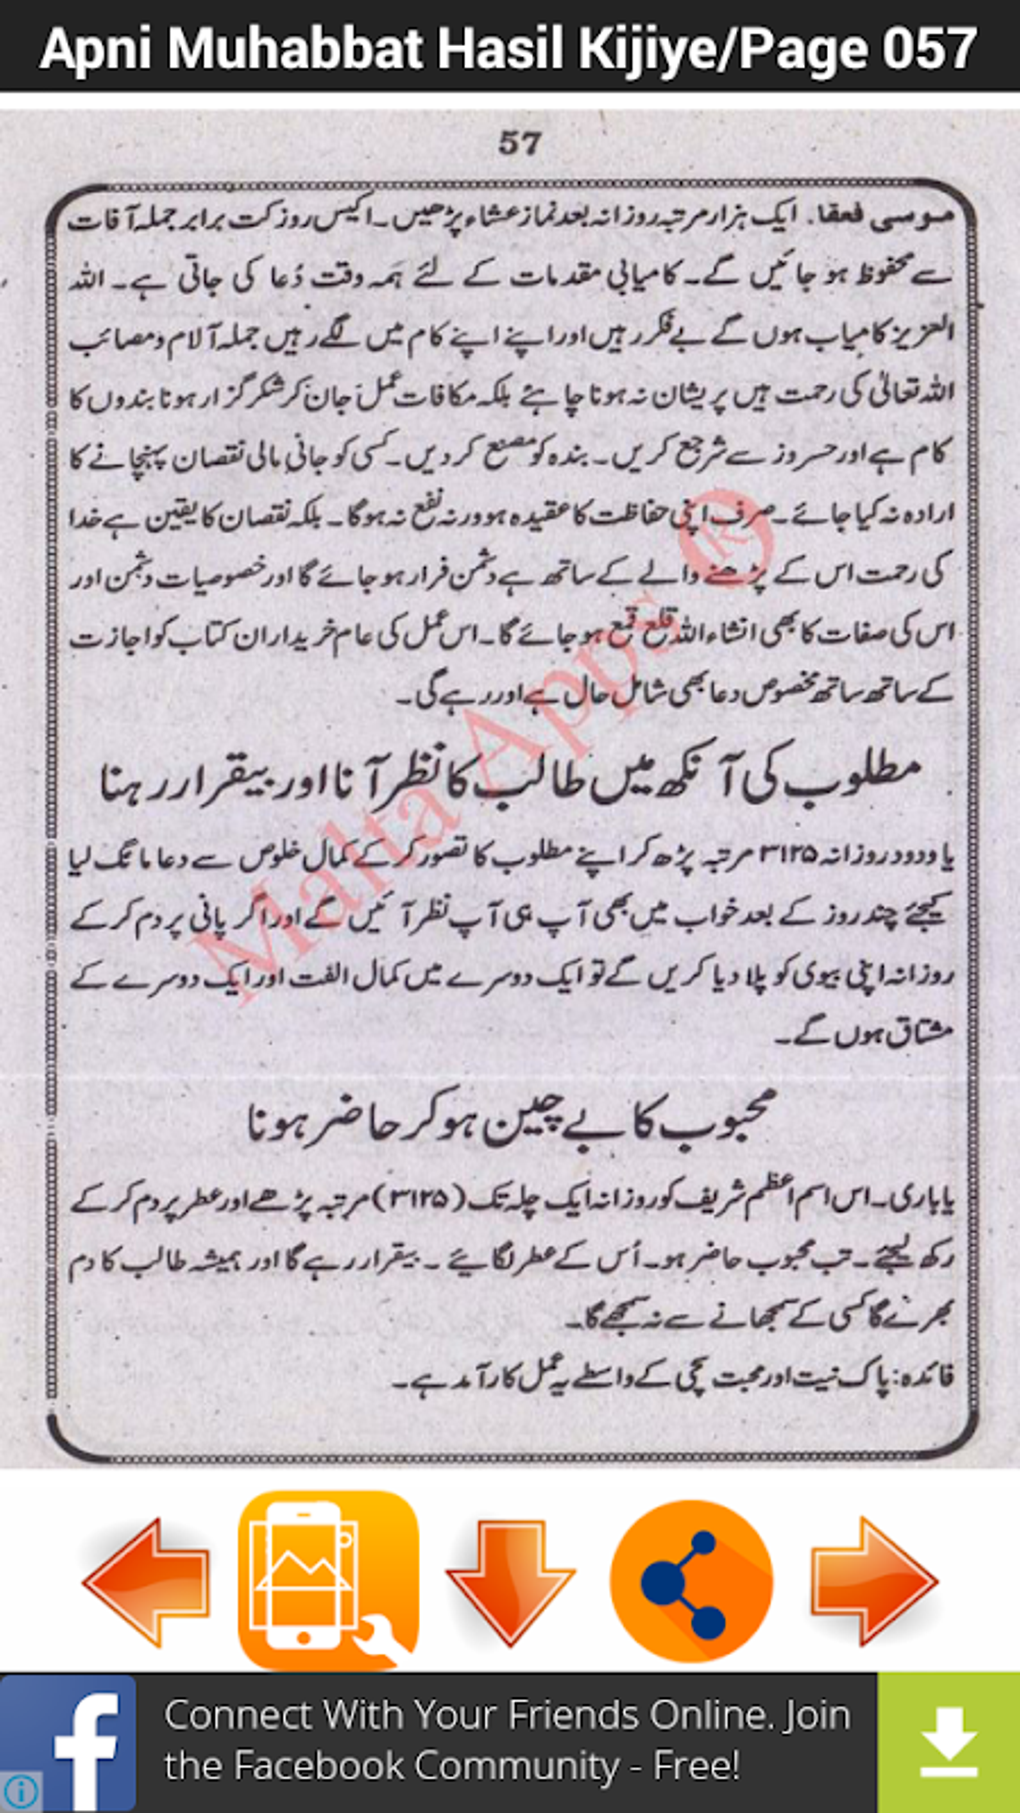 Apni Muhabbat Hasil Kijiye/Page 057
57
موسی فعقا۔ ایک ہزار مرتبہ روزانہ بعد نماز عشاء پڑھیں۔ اکیس روز کت برابر جملہ آفات
سے محفوظ ہو جائیں گے۔ کامیابی مقدمات کے لئے ہمہ وقت دُعا کی جاتی ہے۔ اللہ
العزیز کامیاب ہوں گے بے فکر رہیں اور اپنے اپنے کام میں لگے رہیں جملہ آلام و مصائب
اللہ تعالٰی کی رحمت ہیں پریشان نہ ہونا چاہئے بلکہ مکافات عمل جان کر شکر گزار ہونا بندوں کا
کام ہے اور حسروز سے شرجع کریں۔ بندہ کو کر دیں۔ کسی کو جانی مالی نقصان پہنچانے کا
ارادہ نہ کیا جائے۔ صرف اپنی حفاظت کا عقیدہ ہو ورنہ نفع نہ ہوگا۔ بلکہ نقصان کا یقین ہے خدا
کی رحمت اس کے پڑھنے والے کے ساتھ ہے دشمن فرار ہو جائے گا اور خصوصیات دشمن اور
اس کی صفات کا بھی انشاء اللہ قلع قمع ہو جائے گا۔ اس عمل کی عام خریداران کتاب کو اجازت
کے ساتھ ساتھ مخصوص دعا بھی شامل حال ہے اور رہے گی۔
مطلوب کی آنکھ میں طالب کا نظر آنا اور بیقرار رہنا
یا ودود روزانہ ۳۱۲۵ مرتبہ پڑھ کر اپنے مطلوب کا تصور کر کے کمال خلوص سے دعا مانگ لیا
کیجئے چند روز کے بعد خواب میں بھی آپ ہی آپ نظر آئیں گے اور اگر پانی پر دم کر کے
روزانہ اپنی بیوی کو پلا دیا کریں گے تو ایک دوسرے میں کمال الفت اور ایک دوسرے کے
مشتاق ہوں گے۔
محبوب کا بے چین ہو کر حاضر ہونا
یا باری۔ اس اسم اعظم شریف کو روزانہ ایک چلہ تک (۳۱۲۵) مرتبہ پڑھے اور عطر پر دم کر کے
رکھ لیجئے۔ تب محبوب حاضر ہو۔ اُس کے عطر لگائیے۔ بیقرار رہے گا اور ہمیشہ طالب کا دم
بھرنے گا کسی کے سمجھانے سے نہ سمجھے گا۔
فائدہ: پاک نیت اور محبت سچی کے واسطے یہ عمل کارآمد ہے۔
Malta Apps ®
Connect With Your Friends Online. Join
the Facebook Community - Free!